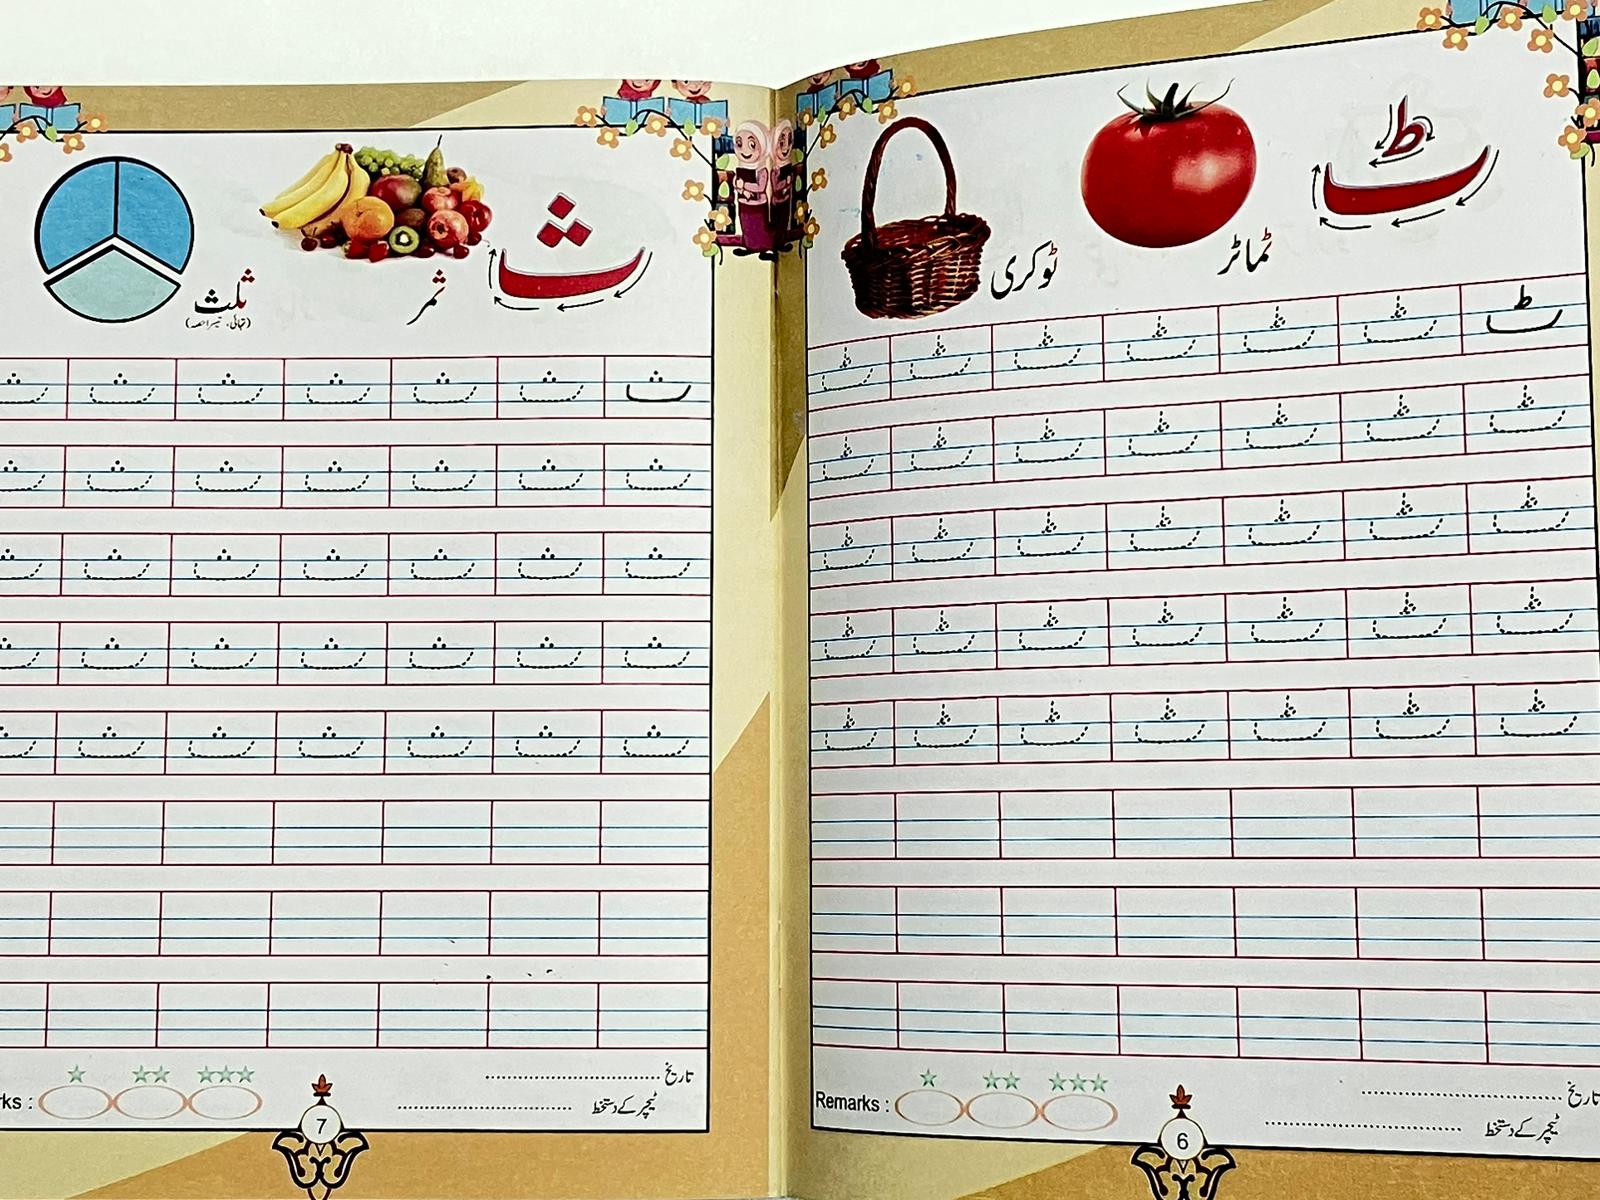 ٹ
ٹماٹر
ٹوکری
ٹ
ٹ ٹ ٹ ٹ ٹ ٹ
ٹ ٹ ٹ ٹ ٹ ٹ ٹ
ٹ ٹ ٹ ٹ ٹ ٹ ٹ
ٹ ٹ ٹ ٹ ٹ ٹ ٹ
ٹ ٹ ٹ ٹ ٹ ٹ ٹ
تاریخ
ٹیچر کے دستخط
Remarks :
6
ث
ثمر
ثلث
(تہائی، تیسرا حصہ)
ث ث ث ث ث ث ث
ث ث ث ث ث ث ث
ث ث ث ث ث ث ث
ث ث ث ث ث ث ث
ث ث ث ث ث ث ث
تاریخ
ٹیچر کے دستخط
rks :
7